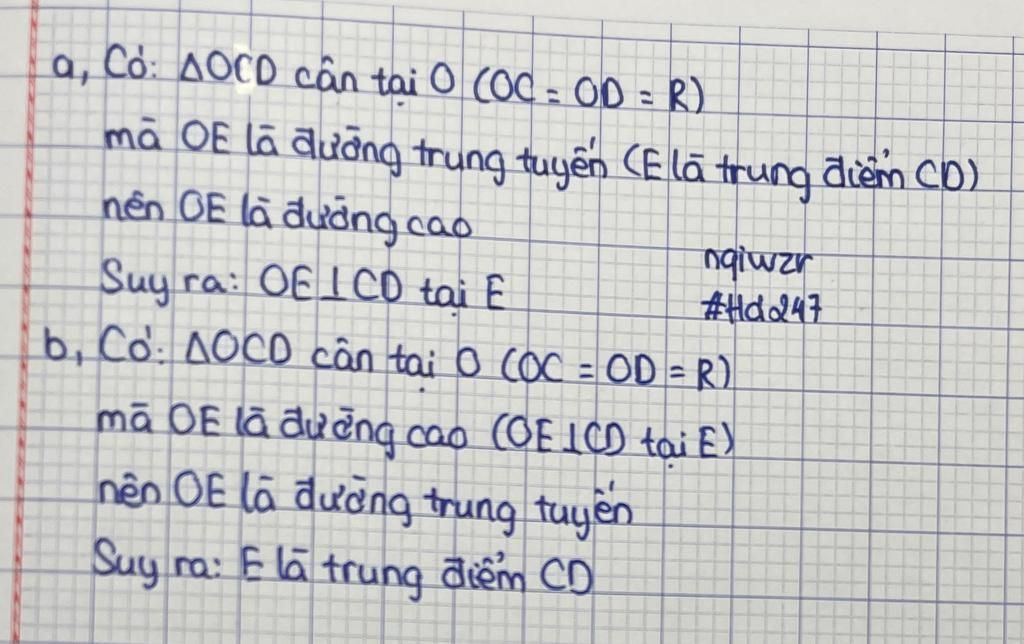 a, Có: ΔOCD cân tại O (OC = OD = R)
mà OE là đường trung tuyến (E là trung điểm CD)
nên OE là đường cao
Suy ra: OE⊥CD tại E
nqiwzr
#Hda247
b, Có: ΔOCD cân tại O (OC = OD = R)
mà OE là đường cao (OE⊥CD tại E)
nên OE là đường trung tuyến
Suy ra: E là trung điểm CD